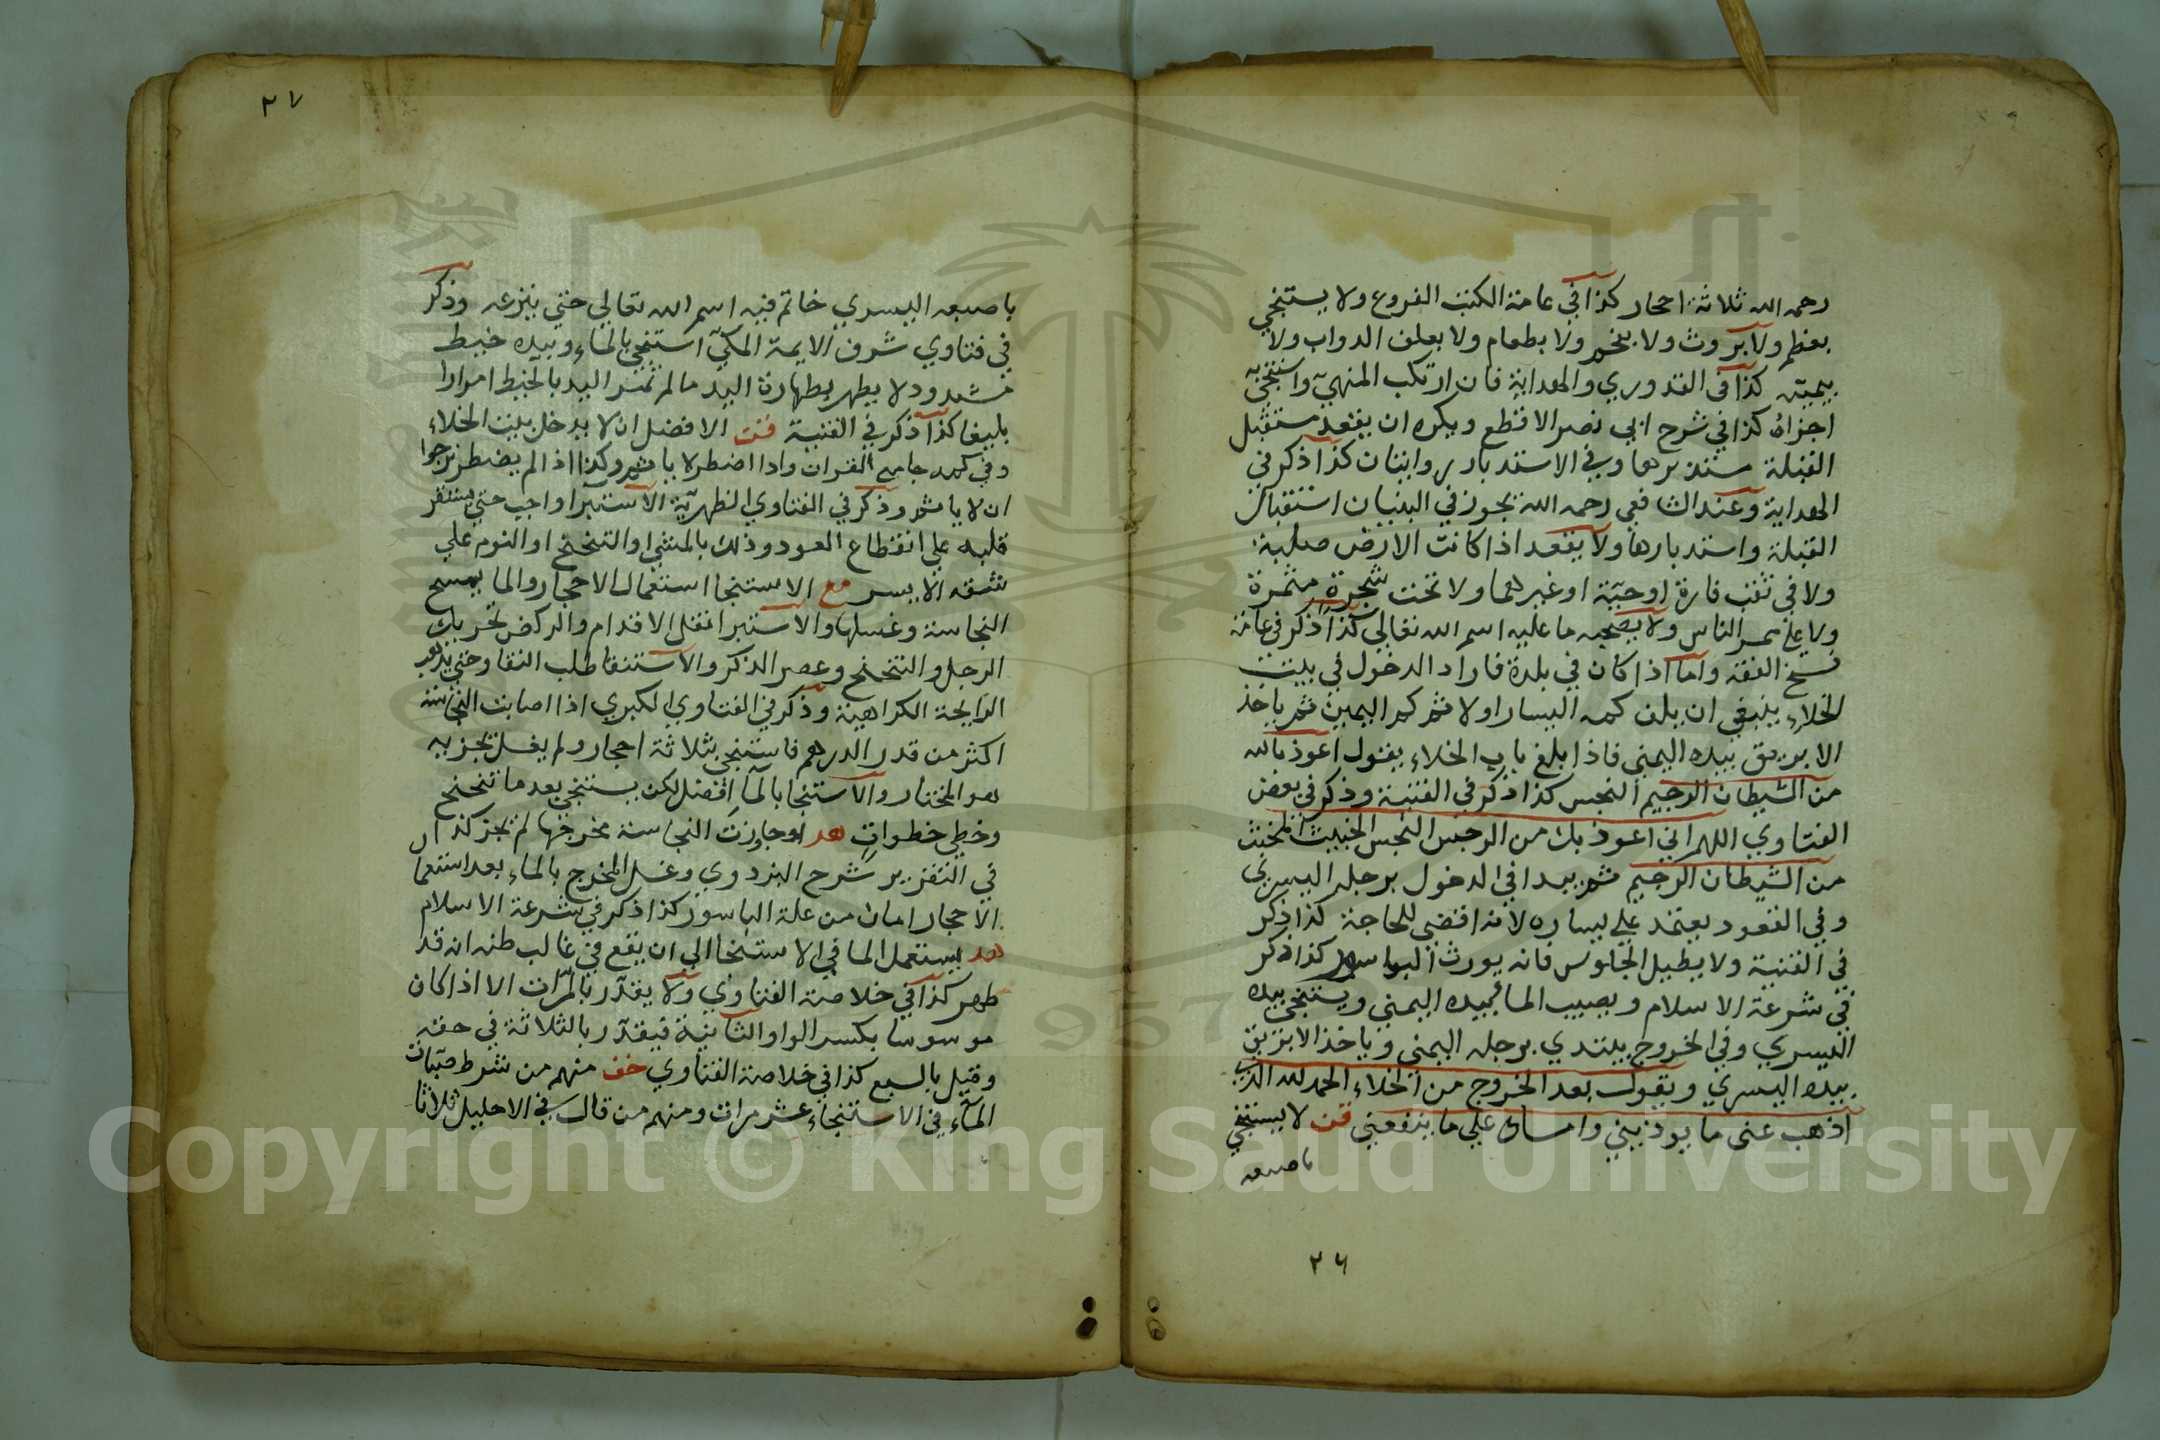 رحمه الله ثلاثة احجار كذا في عامة الكتب الفروع ولا يستنجي
بعظم ولا بروث ولا بفحم ولا بطعام ولا بعلف الدواب ولا
بيمينه كذا في القدوري والهداية فان ارتكب المنهي واستنجى به
اجزاه كذا في شرح ابي نصر الاقطع ويكره ان يقعد مستقبل
القبلة مستدبرها وفي الاستدبار روايتان كذا ذكر في
الهداية وعند الشافعي رحمه الله يجوز في البنيان استقبال
القبلة واستدبارها ولا يقعد اذا كانت الارض صلبة
ولا في ثقب فارة او حية او غيرهما ولا تحت شجرة مثمرة
ولا على ممر الناس ولا يصحبه ما عليه اسم الله تعالى كذا ذكر في عامة
نسخ الفقه واما اذا كان في بلدة فاراد الدخول في بيت
الخلاء ينبغي ان يلف كمه اليسار اولا ثم كم اليمين ثم ياخذ
الابريق بيده اليمنى فاذا بلغ باب الخلاء يقول اعوذ بالله
من الشيطان الرجيم النجس كذا ذكر في القنية وذكر في بعض
الفتاوي اللهم اني اعوذ بك من الرجس النجس الخبيث المخبث
من الشيطان الرجيم ثم يبدا في الدخول برجله اليسرى
وفي القعود يعتمد على يساره لانه اقضى للحاجة كذا ذكر
في القنية ولا يطيل الجلوس فانه يورث البواسير كذا ذكر
في شرعة الاسلام ويصيب الما بيده اليمنى ويستنجي بيده
اليسري وفي الخروج يبتدي برجله اليمنى وياخذ الابريق
بيده اليسري ويقول بعد الخروج من الخلاء الحمد لله الذي
اذهب عني ما يوذيني وامسك علي ما ينفعني قن لا يستنجي
باصبعه
٢٦
٢٧
باصبعه اليسري خاتم فيه اسم الله تعالي حتي ينزعه وذكر
في فتاوي شرف الايمة المكي استنجي بالماء وبيده خيط
مشدود لا يطهر بطهارة اليد ما لم تمر اليد بالخيط امرارا
بليغا كذا ذكر في القنية فت الافضل ان لا يدخل بيت الخلاء
وفي كمه جامع القران واذا اضطر لا ياثم وكذا اذا لم يضطر نرجوا
ان لا ياثم وذكر في الفتاوي الظهرية الاستبرا واجب حتى يستقر
قلبه على انقطاع العود وذلك بالمشي او التنحنح او النوم على
شقه الايسر مع الاستنجا استعمال الاحجار والما يمسح
النجاسة وغسلها والاستبرا نقل الاقدام والركض تحريك
الرجل والتنحنح وعصر الذكر والاستنقا طلب النقاوة حتى يذهب
الرايحة الكراهية وذكر في الفتاوي الكبري اذا اصابت النجاسة
اكثر من قدر الدرهم فاستنجى بثلاثة احجار ولم يغسل يجزيه
هو المختار والاستنجا بالما افضل لكن يستنجي بعد ما تنحنح
وخطى خطوات هد لو جاوزت النجاسة مخرجها لم يجز كذا
في التقرير شرح البزدوي وغسل المخرج بالماء بعد استعمال
الاحجار امان من علة الباسور كذا ذكر في شرعة الاسلام
هد يستعمل الما في الاستنجا الي ان يقع في غالب ظنه انه قد
طهر كذا في خلاصة الفتاوي ولا يقدر بالمرات الا اذا كان
موسوسا بكسر الواو الثانية فيقدر بالثلاثة في حقه
وقيل بالسبع كذا في خلاصة الفتاوي خف منهم من شرط صبات
الماء في الاستنجاء عشر مرات ومنهم من قال في الاحليل ثلاثا
Copyright © King Saud University
1957